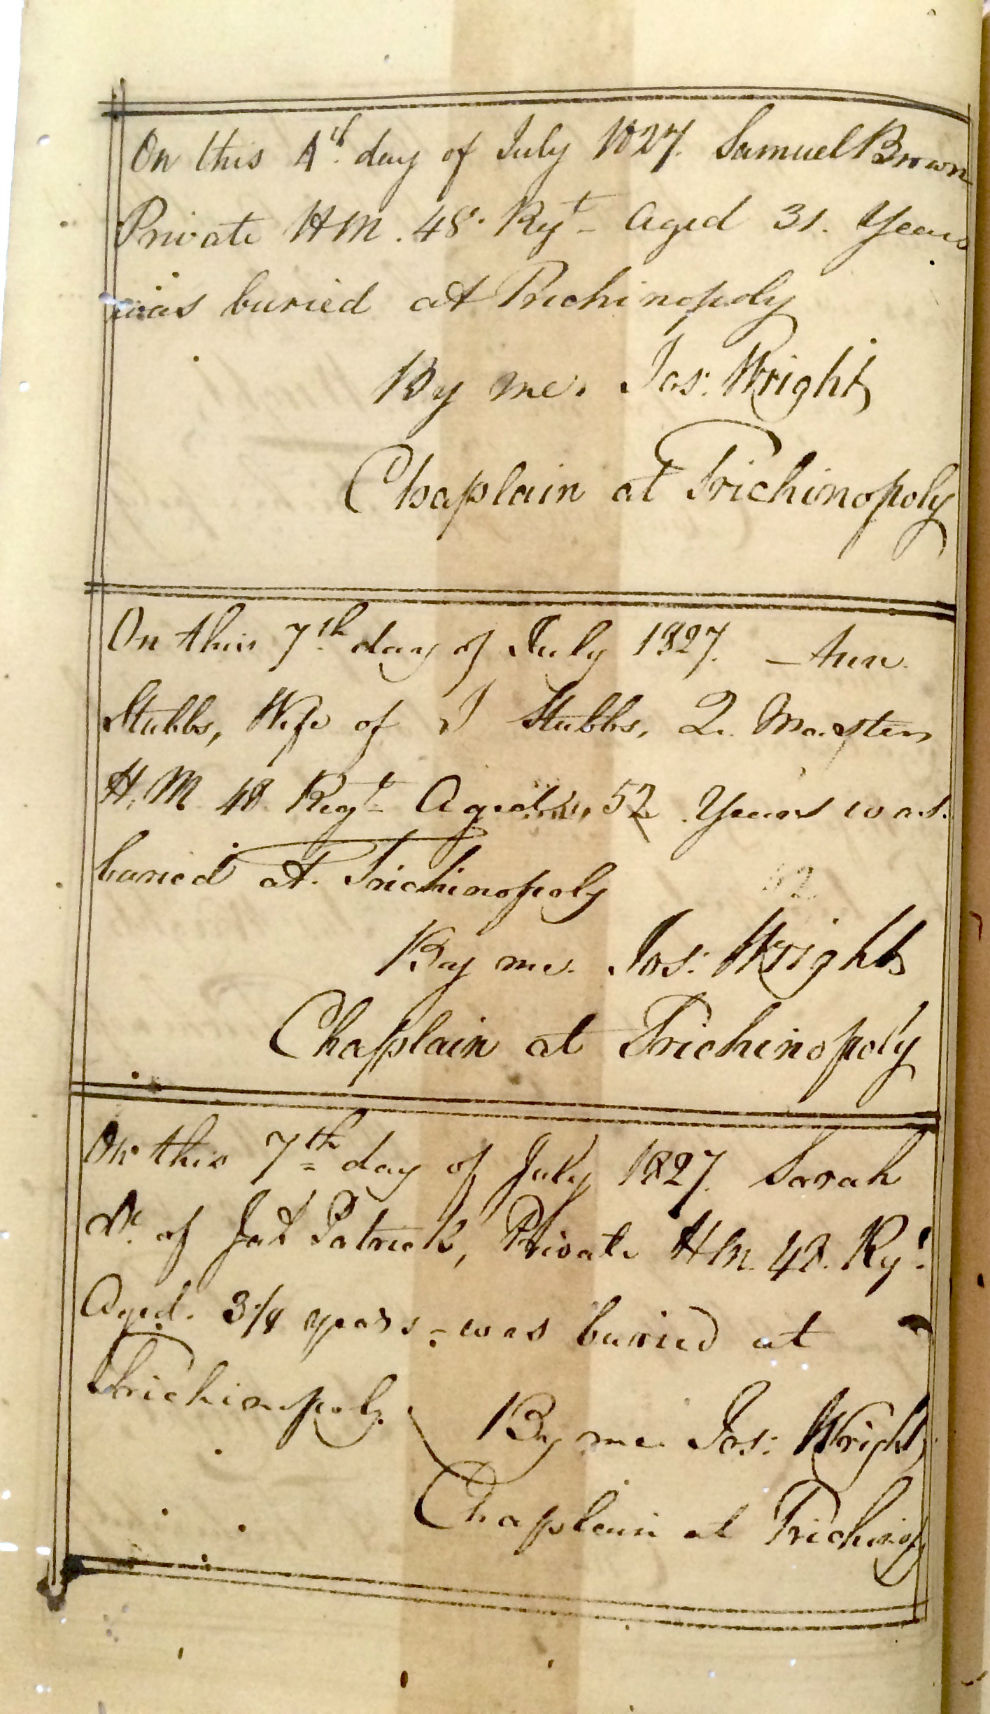 On this 4th day of July 1827. Samuel Brown
Private H M. 48. Regt - aged 31. Years
was buried at Trichinopoly
By me. Jos: Wright
Chaplain at Trichinopoly
On this 7th day of July 1827. - Ann
Stubbs, Wife of J Stubbs, Q. Master
H. M 48 Regt Aged 52 Years was
buried at Trichinopoly
52
By me. Jos: Wright
Chaplain at Trichinopoly
On this 7th day of July 1827. Sarah
Dr. of Patrick, Private H M. 48. Rgt
Aged. 3/4 years - was buried at
Trichinopoly.
By me. Jos: Wright
Chaplain at Trichinopy